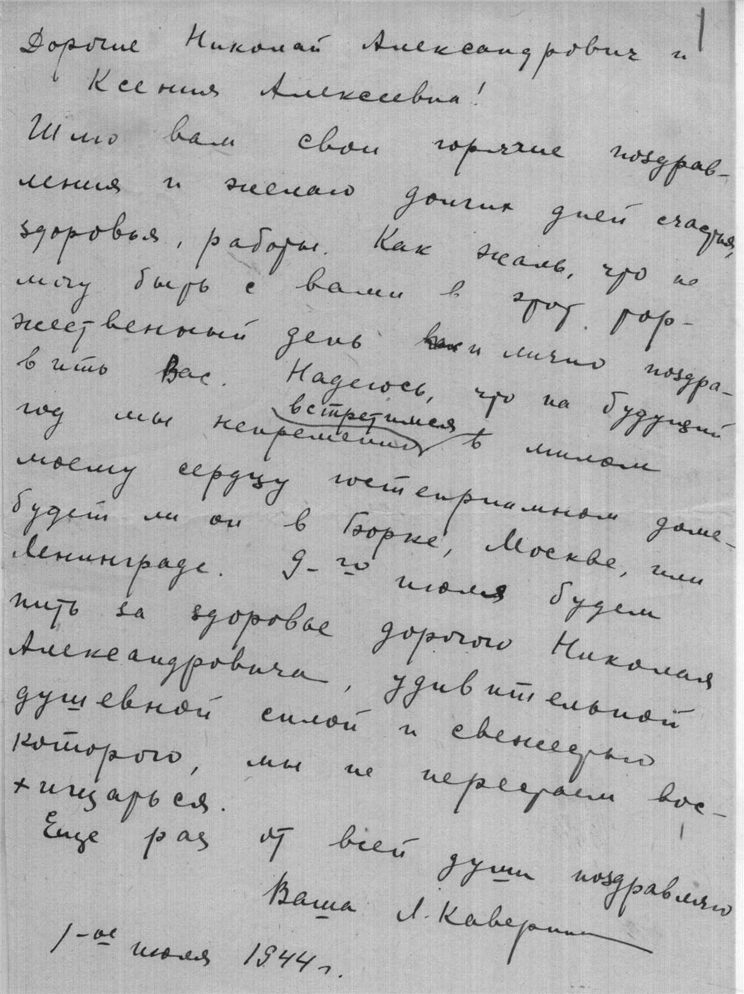 1
Дорогие Николай Александрович и
Ксения Алексеевна!
Шлю вам свои горячие поздрав-
ления и желаю долгих дней счастья,
здоровья, работы. Как жаль, что не
могу быть с вами в этот тор-
жественный день и лично поздра-
вить Вас. Надеюсь, что на будущий
год мы непременно встретимся в милом
моему сердцу гостеприимном доме-
будет ли он в Борке, Москве, или
Ленинграде. 9-го июля будем
пить за здоровье дорогого Николая
Александровича, удивительной
душевной силой и свежестью
которого, мы не перестаем вос-
хищаться.
Еще раз от всей души поздравляю
Ваша Л. Каверина
1-ое июля 1944 г.